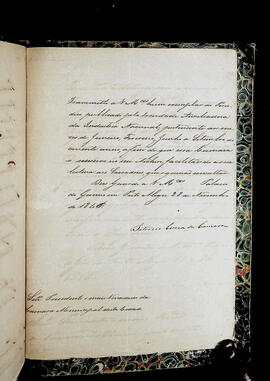 Transmitto a V. M.ces hum exemplar do
publicado pela Sociedade Auxiliadora
da Industria Nacional, pertencente ao mez
de Janeiro, Fevereiro, Junho e Setembro do
corrente anno, a fim de que essa Camara
o conserve no seu Archivo, facilitando a sua
leitura aos que a queirão consultar
Deos Guarde a V. M.ces Palacio
do Governo em Porto Alegre 28 de Novembro
de 184
Corrêa da Camara
Snr.es Presidente e mais Vereadores da
Camara Municipal desta Cidade